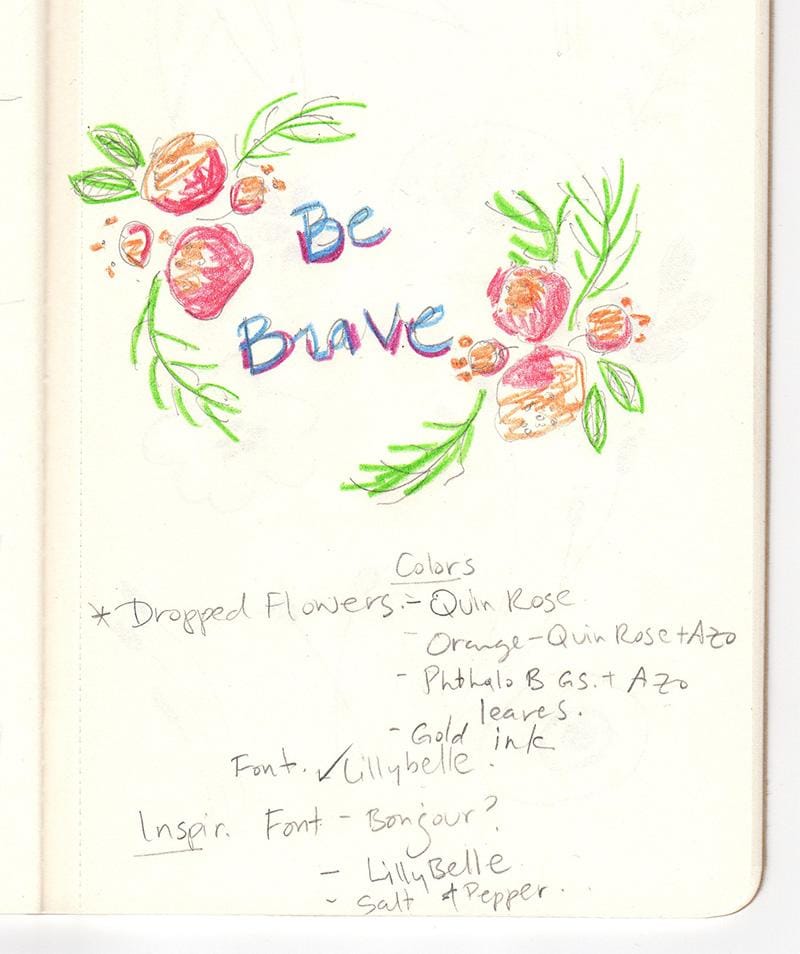 Be
Brave
Colors
* Dropped Flowers. - Quin Rose
- Orange - Quin Rose + Azo
- Phthalo B G.S. + Azo
leaves.
- Gold ink
Font. ✓ Lillybelle.
Inspir. Font - Bonjour?
- LillyBelle
- Salt & Pepper.